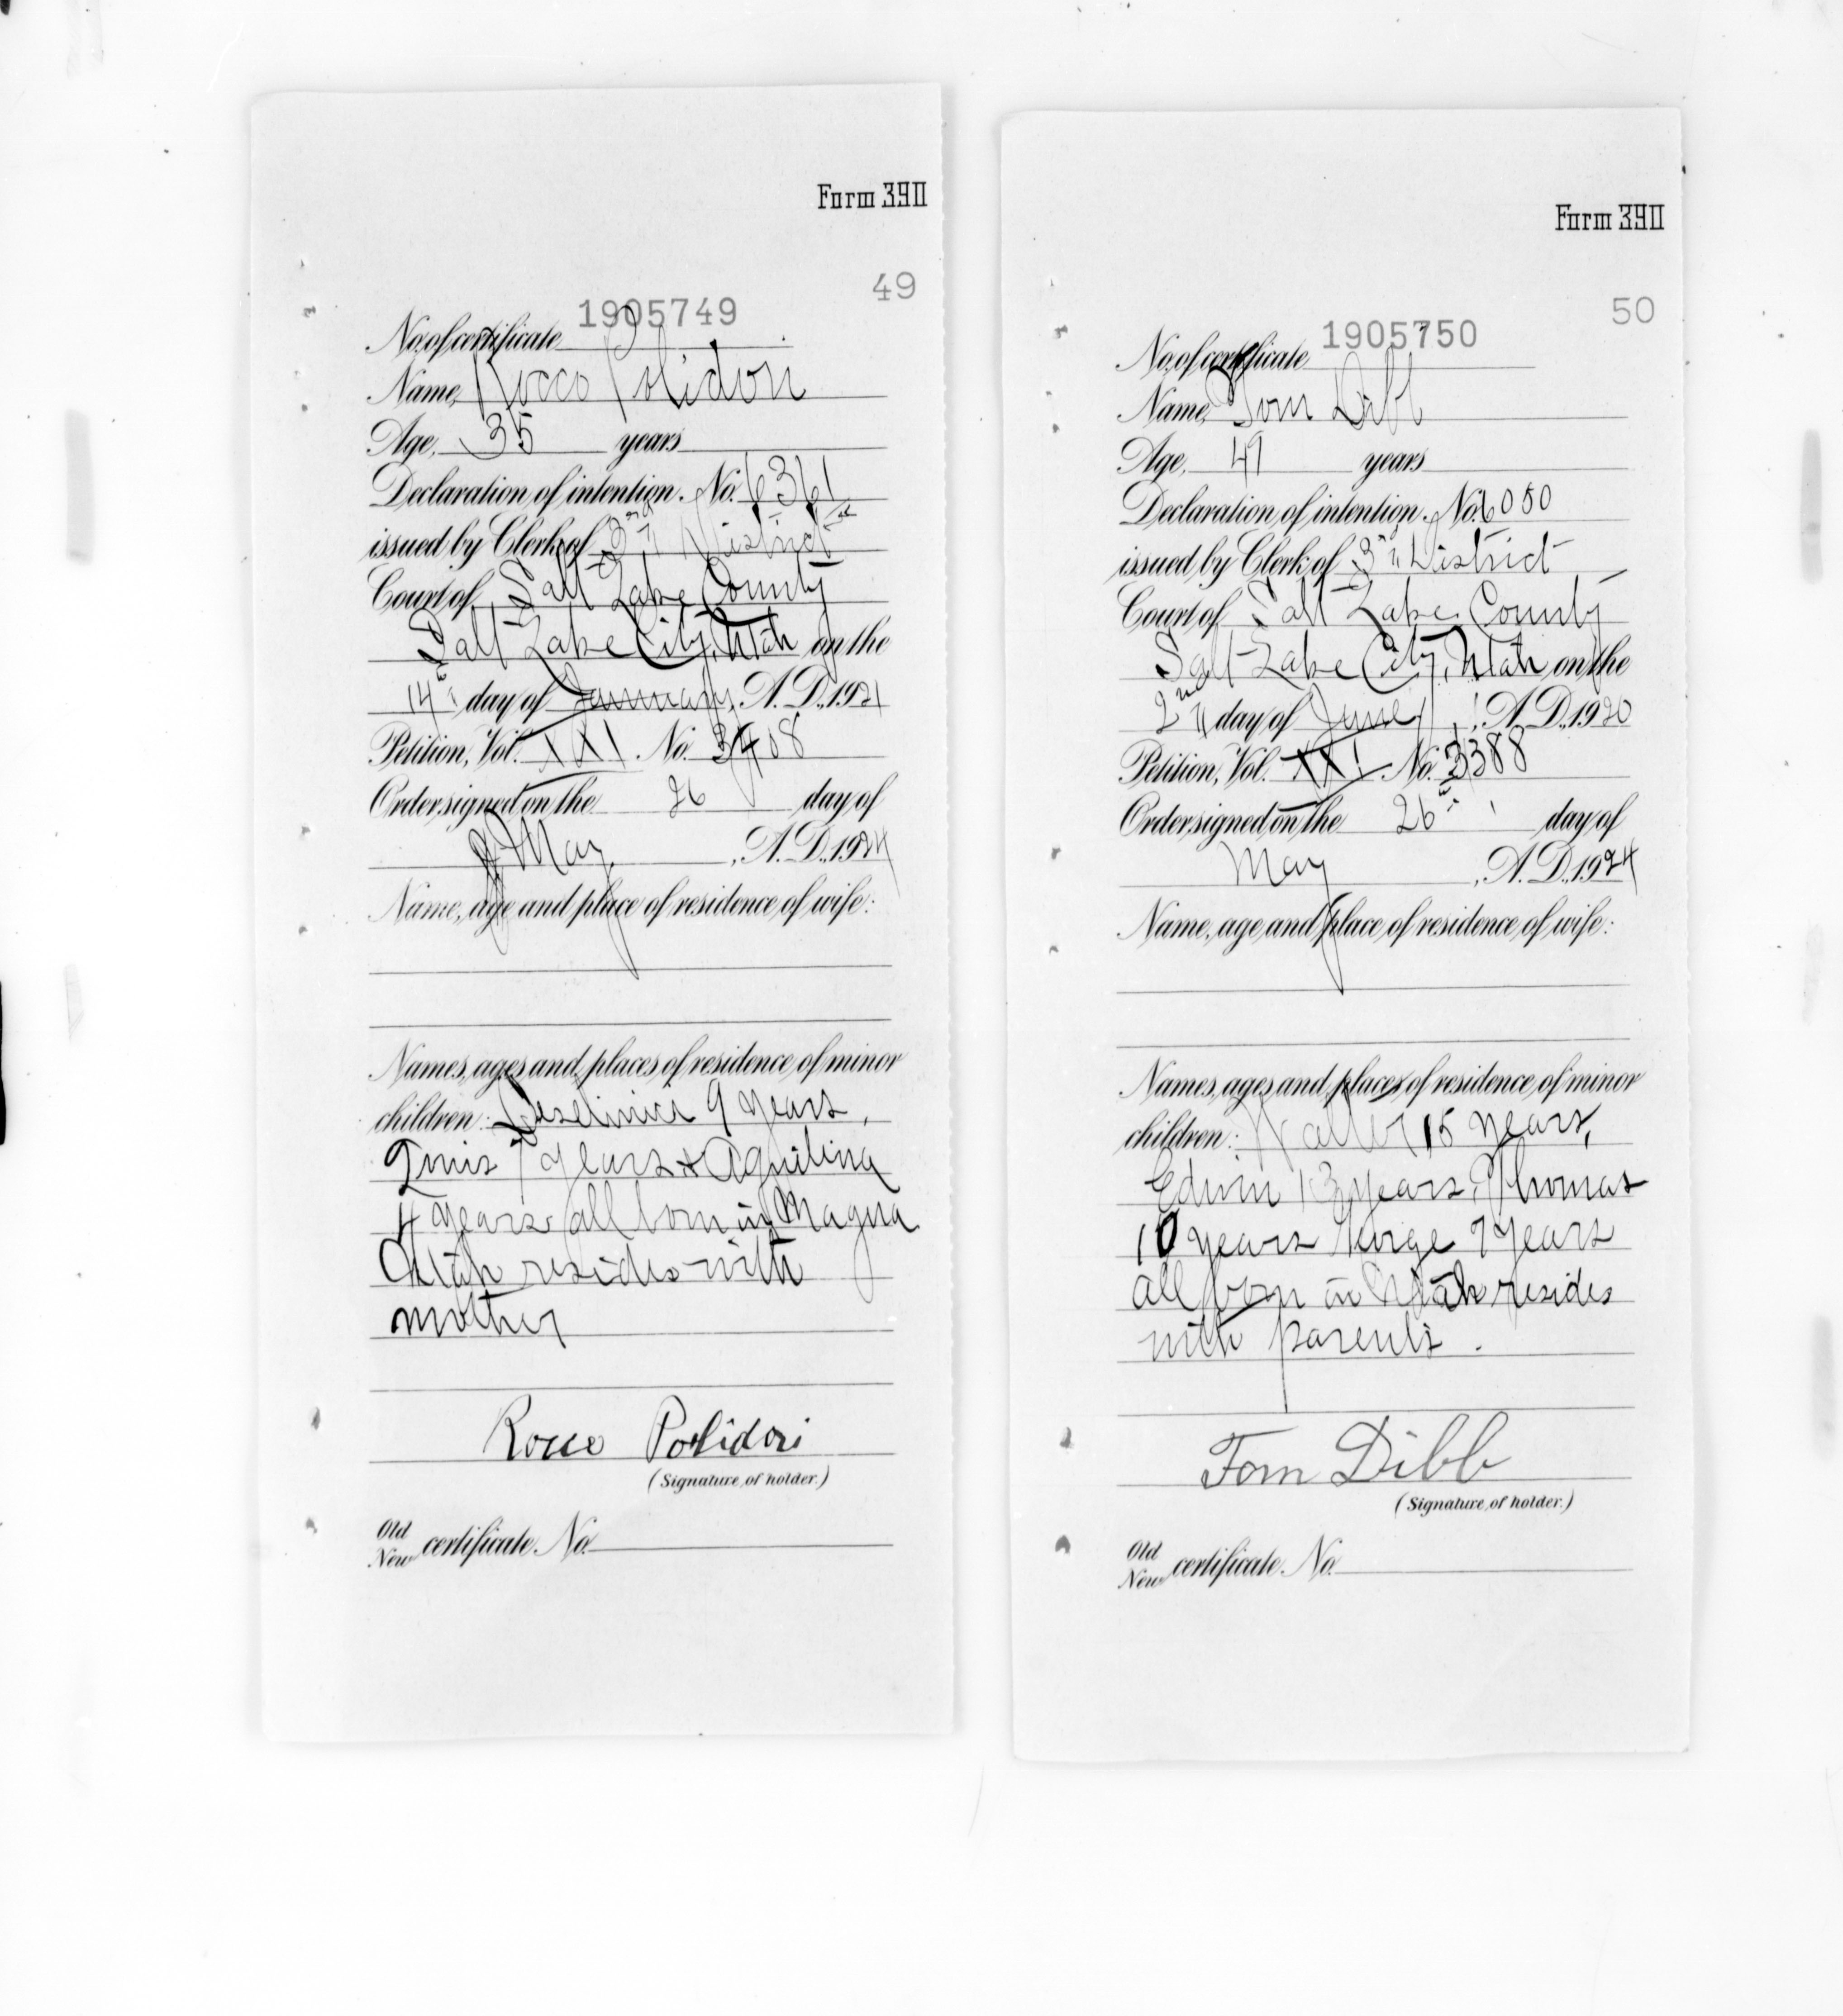 Form 390
49
No. of certificate 1905749
Name, Rocco Polidori
Age, 35 years
Declaration of intention, No. 6361
issued by Clerk of 3rd District
Court of Salt Lake County
Salt Lake City, Utah on the
14" day of January, A. D., 1921
Petition, Vol. XXI No. 3408
Order signed on the 26 day of
May, A. D., 1924
Name, age and place of residence of wife:
Names, ages and places of residence of minor
children: 9 years,
7 years & Aquilina
4 years all born in Magna
Utah resides with
mother
Rocco Polidori
(Signature of holder.)
Old
New certificate No.
Form 390
50
No. of certificate 1905750
Name, Tom Dibb
Age, years
Declaration of intention, No. 6050
issued by Clerk of 3rd District
Court of Salt Lake County
Salt Lake City, Utah on the
2nd day of June, A. D., 1920
Petition, Vol. XXI No. 3388
Order signed on the 26" day of
May, A. D., 1924
Name, age and place of residence of wife:
Names, ages and places of residence of minor
children: Walter 15 years,
Edwin 13 years, Thomas
10 years George 7 years
all born in Utah resides
with parents.
Tom Dibb
(Signature of holder.)
Old
New certificate No.